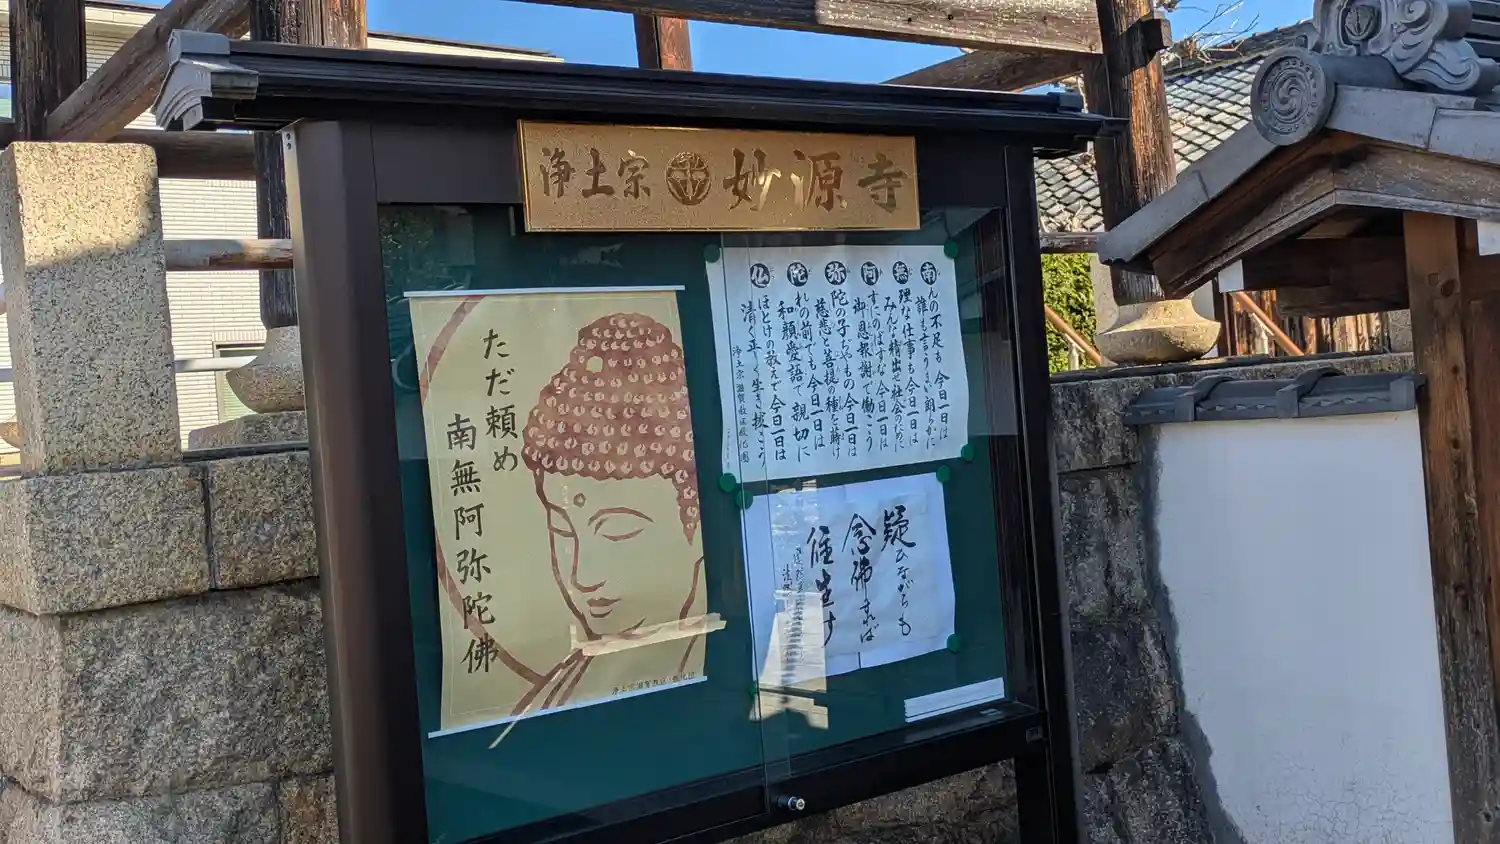 浄土宗 妙源寺
ただ頼め
南無阿弥陀佛
浄土宗滋賀教区・教化団
南んの不足も 今日一日は
誰も言うまい 朗らかに
無理な仕事も 今日一日は
みんな精出せ 社会のために
阿すにのばすな 今日一日は
御恩報謝で 働こう
弥陀の子だもの 今日一日は
慈悲と菩提の 種を蒔け
陀れの前でも 今日一日は
和顔愛語で 親切に
仏ほとけの教えで 今日一日は
清く正しく 生き抜こう
浄土宗滋賀教区教化団
疑ひながらも
念佛すれば
往生す